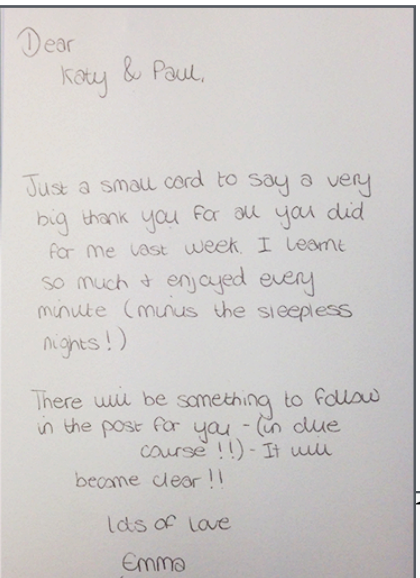 Dear
Katy & Paul,
Just a small card to say a very
big thank you for all you did
for me last week. I learnt
so much & enjoyed every
minute (minus the sleepless
nights!)
There will be something to follow
in the post for you - (in due
course!!) - It will
become clear!!
lots of love
Emma